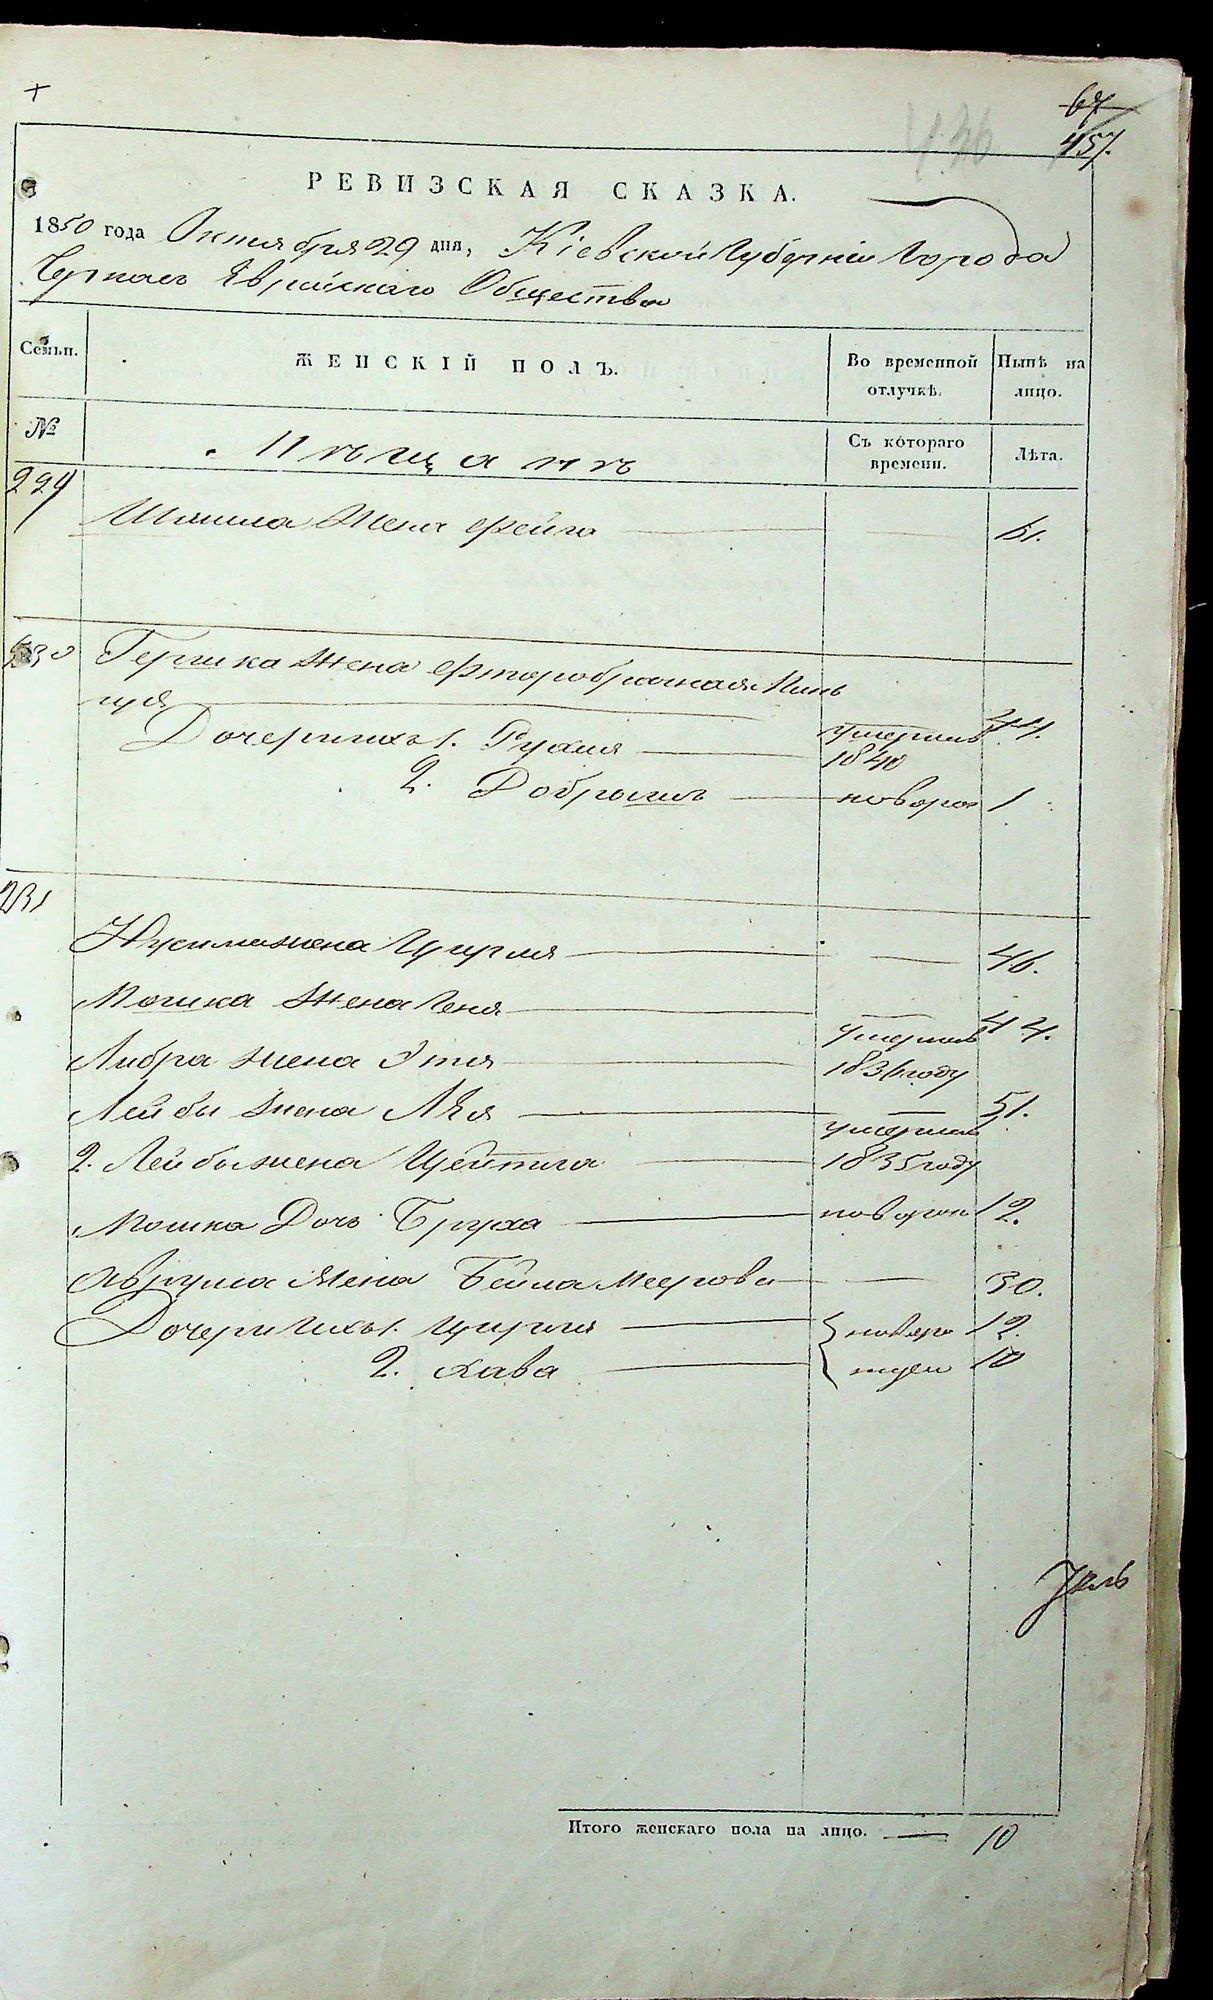 67
457.
436
РЕВИЗСКАЯ СКАЗКА.
1850 года Октября 29 дня, Кіевской Губерніи Города
Черкасъ Еврейскаго Общества
Семьи.
ЖЕНСКІЙ ПОЛЪ.
Во временной отлучкѣ.
Нынѣ на лицо.
№
Мѣщанъ
Съ котораго времени.
Лѣта.
229
Шмилла Жена Фейга 51.
230 Гершка жена фторобрачная Пинь
цуя 44.
Дочери ихъ 1. Рухля умерши 1840
2. Добрышъ новорож 1
231
Нусима жена Цирля 46.
Мошка жена Геня 44.
Либра жена Этя умерши 1836 году
Лейбы жена Лѣя 51.
2. Лейбы жена Цейтля умерши 1835 году
Мошка Дочь Бруха новорож 12.
Аврума Жена Бейла Меерова 30.
Дочери ихъ 1. Цирля новоро 12.
2. Хава жден 10
Итого женскаго пола на лицо. 10